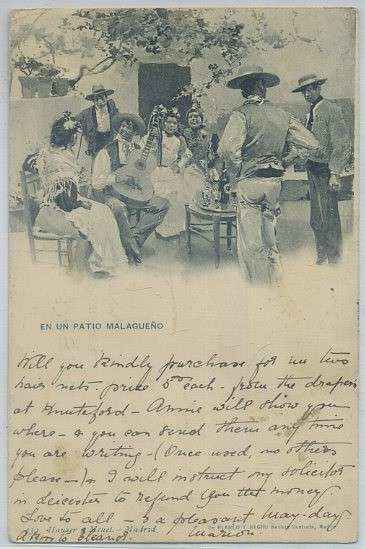 EN UN PATIO MALAGUEÑO
Will you kindly purchase for me two
hair nets - price 5 each - from the drapers
at Knutsford - Annie will show you
where - & you can send them any time
you are writing - (Once used, no others
please -) I will instruct my solicitor
in Leicester to refund you the money
Love to all - & a pleasant May-day
Marion
Hauser y Menet.- Madrid
De BLANCO Y NEGRO Revista Ilustrada, Madrid